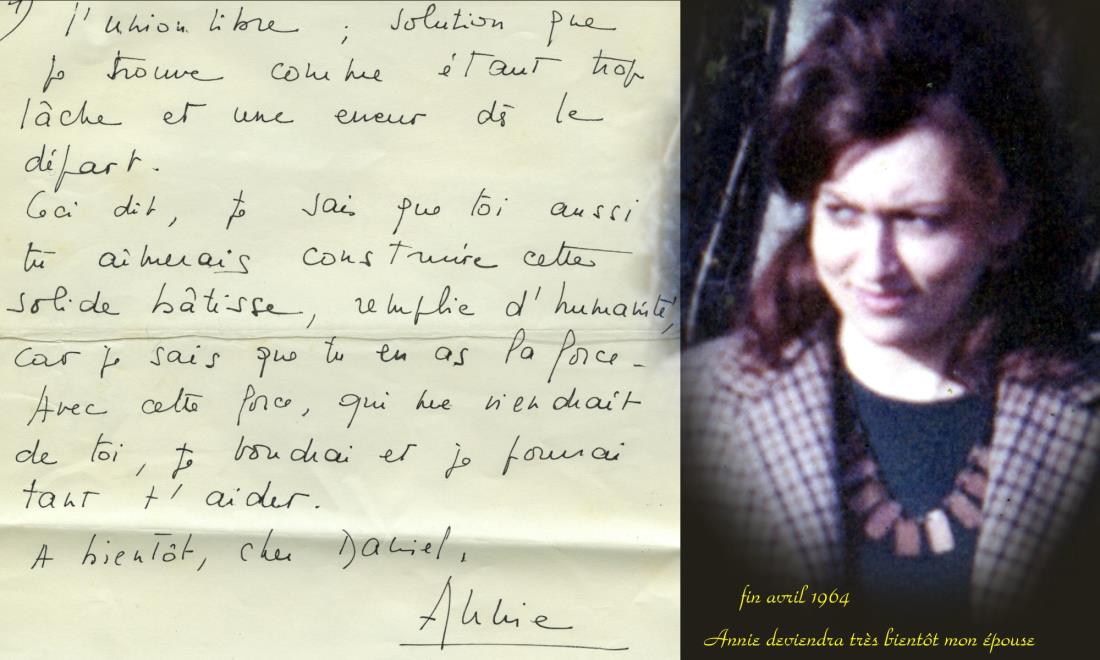 l'union libre ; solution que
je trouve comme étant trop
lâche et une erreur dès le
départ.
Ceci dit, je sais que toi aussi
tu aimerais construire cette
solide bâtisse, remplie d'humanité,
car je sais que tu en as la force -
Avec cette force, qui me viendrait
de toi, je voudrai et je pourrai
tant t'aider.
A bientôt, cher Daniel.
Annie
fin avril 1964
Annie deviendra très bientôt mon épouse